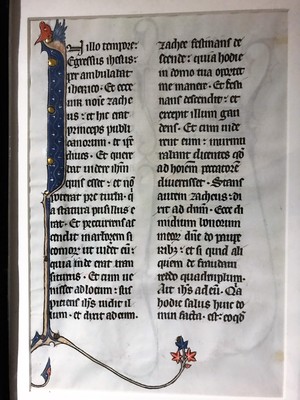 In illo tempore:
Egressus ihesus:
per ambulabat
iherico. Et ecce
uir noīe zache
us: et hic erat
princeps publi
canorum. et ip̄e
diues. Et quere
bat uidere ihm̄
quis esset: et nō
poterat pre turba. q̄
a statura pusillus e
rat. Et precurrens as
cendit arborem si
comor ut uidet eū:
quia inde erat tran
siturus. Et cum ue
nisset ad locum: sus
piciens ihs̄ uidit il
lum. et dixit ad eum.
zachee festinans de
scende: quia hodie
in domo tua oportet
me manere. Et festi
nans descendit: et
excepit illum gau
dens. Et cum uide
rent eum: murmu
rabant dicentes qd̄
ad hoīem peccatorē
diuertisset. Stans
autem zacheus: di
xit ad dnm̄. Ecce di
midium bonorum
meor dn̄e do paupe
ribz: et si quid ali
quem de fraudaui
reddo quadruplum.
Ait ihs̄ ad eū. Q̄a
hodie salus huic do
mui facta. est: eo qd̄